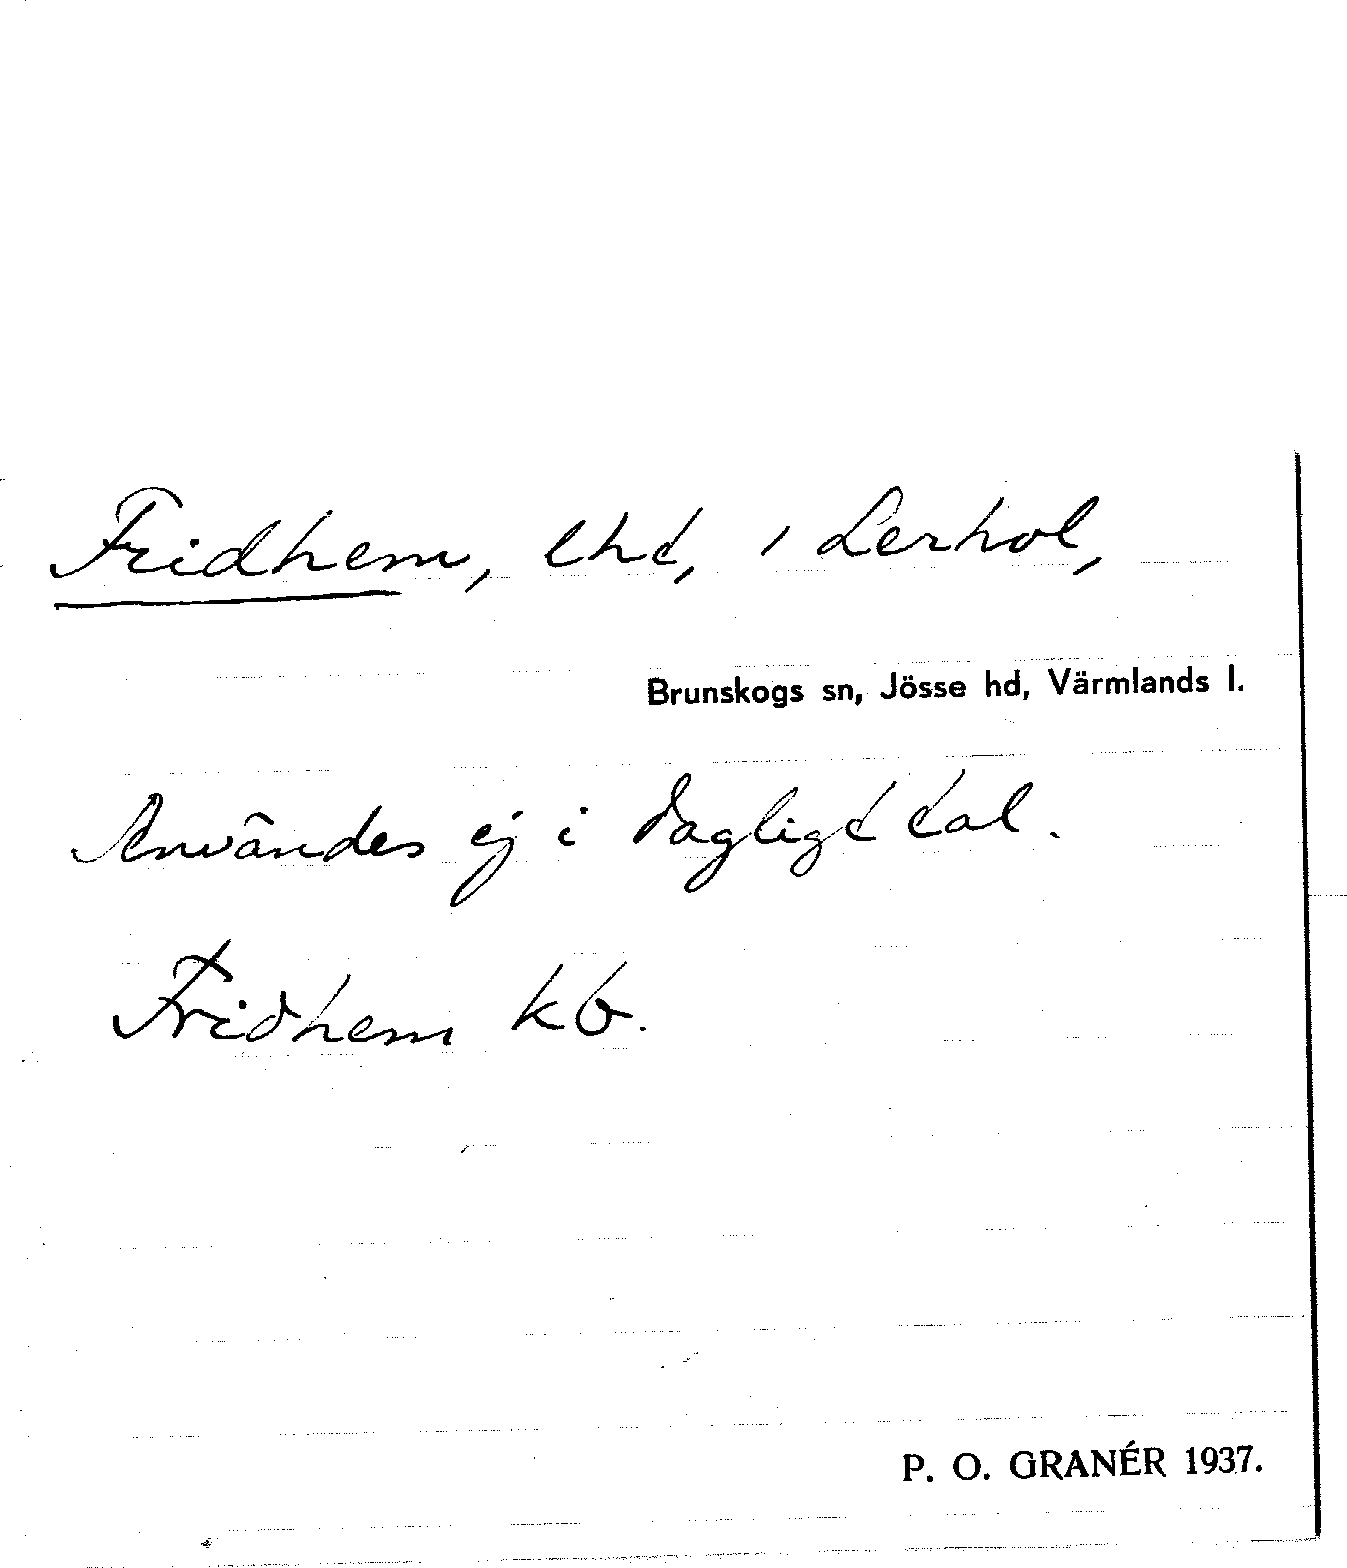 Fridhem, lht, i Lerhol,
Brunskogs sn, Jösse hd, Värmlands l.
Användes ej i dagligt tal.
Fridhem kb.
P. O. GRANÉR 1937.